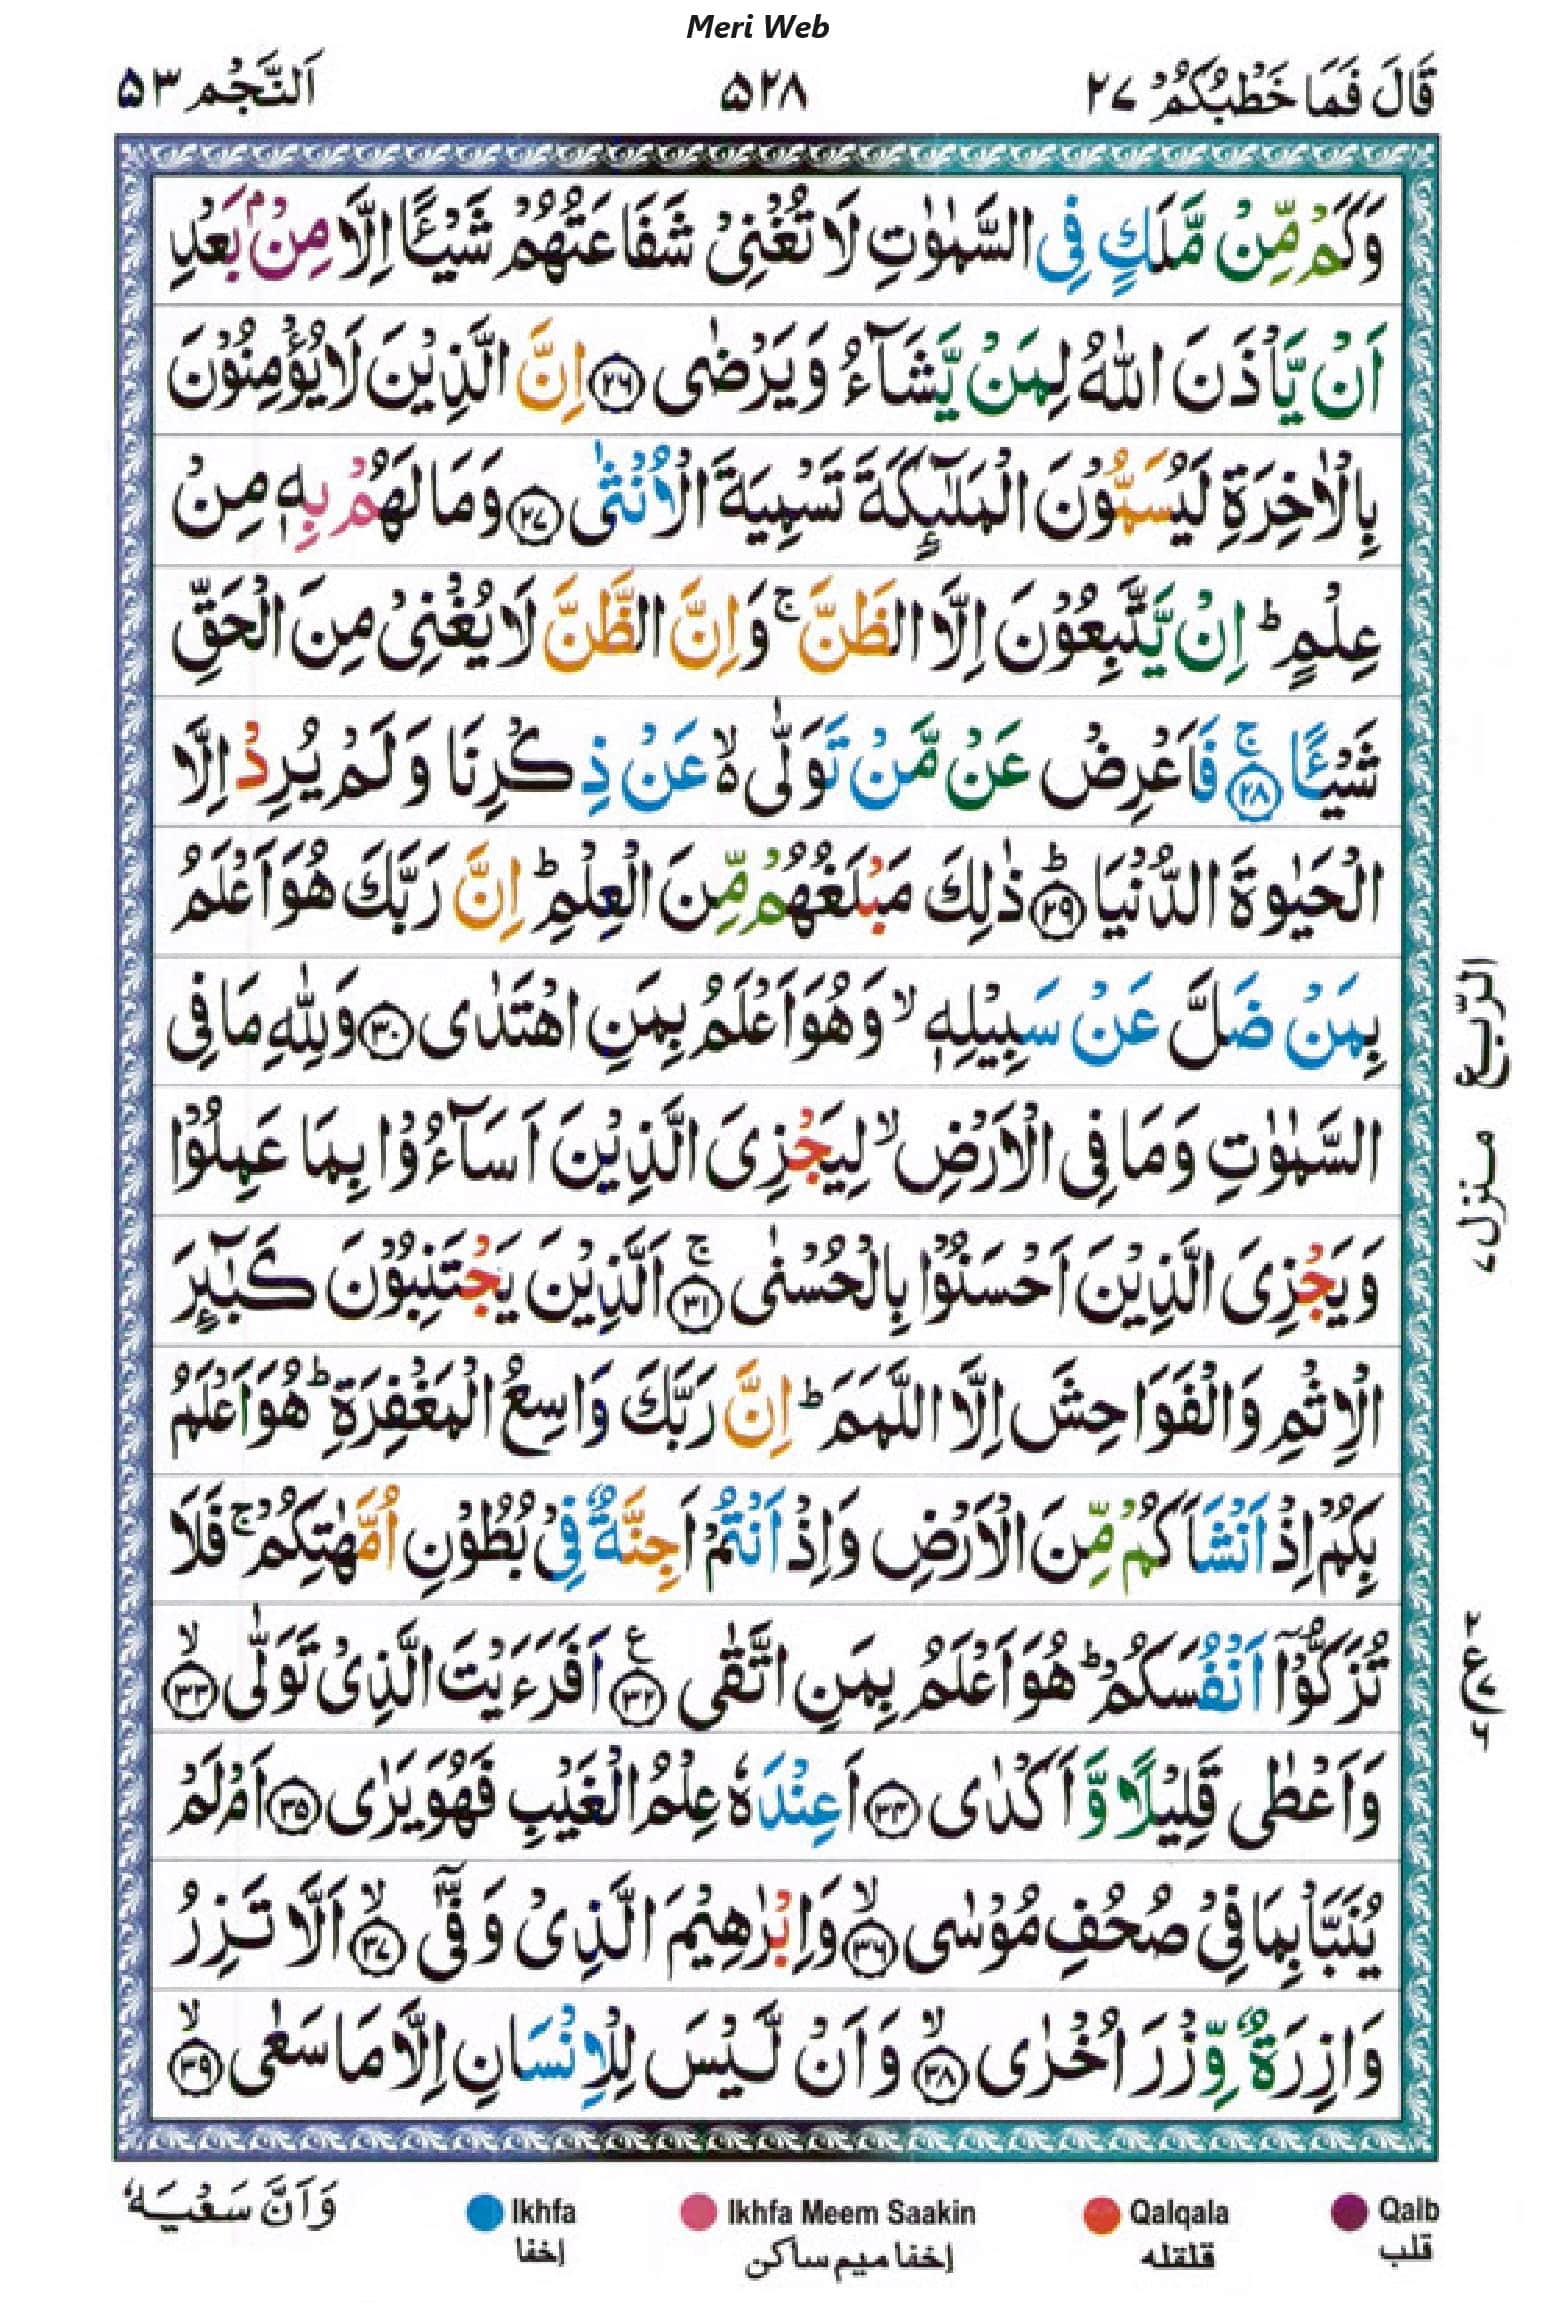 Meri Web
قَالَ فَمَا خَطْبُكُمْ ٢٧ ۵٢٨ اَلنَّجْم ۵٣
وَكَمْ مِّنْ مَّلَكٍ فِی السَّمٰوٰتِ لَا تُغْنِیْ شَفَاعَتُهُمْ شَیْـًٔا اِلَّا مِنْۢ بَعْدِ
اَنْ یَّاْذَنَ اللّٰهُ لِمَنْ یَّشَآءُ وَ یَرْضٰی ﴿۲۶﴾ اِنَّ الَّذِیْنَ لَا یُؤْمِنُوْنَ
بِالْاٰخِرَةِ لَیُسَمُّوْنَ الْمَلٰٓىِٕكَةَ تَسْمِیَةَ الْاُنْثٰی ﴿۲۷﴾ وَ مَا لَهُمْ بِهٖ مِنْ
عِلْمٍ ؕ اِنْ یَّتَّبِعُوْنَ اِلَّا الظَّنَّ ۚ وَ اِنَّ الظَّنَّ لَا یُغْنِیْ مِنَ الْحَقِّ
شَیْـًٔا ﴿ۚ۲۸﴾ فَاَعْرِضْ عَنْ مَّنْ تَوَلّٰی ۙ۬ عَنْ ذِكْرِنَا وَ لَمْ یُرِدْ اِلَّا
الْحَیٰوةَ الدُّنْیَا ﴿ؕ۲۹﴾ ذٰلِكَ مَبْلَغُهُمْ مِّنَ الْعِلْمِ ؕ اِنَّ رَبَّكَ هُوَ اَعْلَمُ
بِمَنْ ضَلَّ عَنْ سَبِیْلِهٖ ۙ وَ هُوَ اَعْلَمُ بِمَنِ اهْتَدٰی ﴿۳۰﴾ وَ لِلّٰهِ مَا فِی
السَّمٰوٰتِ وَ مَا فِی الْاَرْضِ ۙ لِیَجْزِیَ الَّذِیْنَ اَسَآءُوْا بِمَا عَمِلُوْا
وَ یَجْزِیَ الَّذِیْنَ اَحْسَنُوْا بِالْحُسْنٰی ﴿ۚ۳۱﴾ اَلَّذِیْنَ یَجْتَنِبُوْنَ كَبٰٓىِٕرَ
الْاِثْمِ وَ الْفَوَاحِشَ اِلَّا اللَّمَمَ ؕ اِنَّ رَبَّكَ وَاسِعُ الْمَغْفِرَةِ ؕ هُوَ اَعْلَمُ
بِكُمْ اِذْ اَنْشَاَكُمْ مِّنَ الْاَرْضِ وَ اِذْ اَنْتُمْ اَجِنَّةٌ فِیْ بُطُوْنِ اُمَّهٰتِكُمْ ۚ فَلَا
تُزَكُّوْۤا اَنْفُسَكُمْ ؕ هُوَ اَعْلَمُ بِمَنِ اتَّقٰی ﴿۳۲﴾ اَفَرَءَیْتَ الَّذِیْ تَوَلّٰی ﴿ۙ۳۳﴾
وَ اَعْطٰی قَلِیْلًا وَّ اَكْدٰی ﴿۳۴﴾ اَعِنْدَهٗ عِلْمُ الْغَیْبِ فَهُوَ یَرٰی ﴿۳۵﴾ اَمْ لَمْ
یُنَبَّاْ بِمَا فِیْ صُحُفِ مُوْسٰی ﴿ۙ۳۶﴾ وَ اِبْرٰهِیْمَ الَّذِیْ وَفّٰۤی ﴿ۙ۳۷﴾ اَلَّا تَزِرُ
وَازِرَةٌ وِّزْرَ اُخْرٰی ﴿ۙ۳۸﴾ وَ اَنْ لَّیْسَ لِلْاِنْسَانِ اِلَّا مَا سَعٰی ﴿ۙ۳۹﴾
الرّبع
منزل ۷
٢
ع
۶
وَ اَنَّ سَعْیَهٗ
Ikhfa
إخفا
Ikhfa Meem Saakin
إخفا ميم ساكن
Qalqala
قلقله
Qalb
قلب